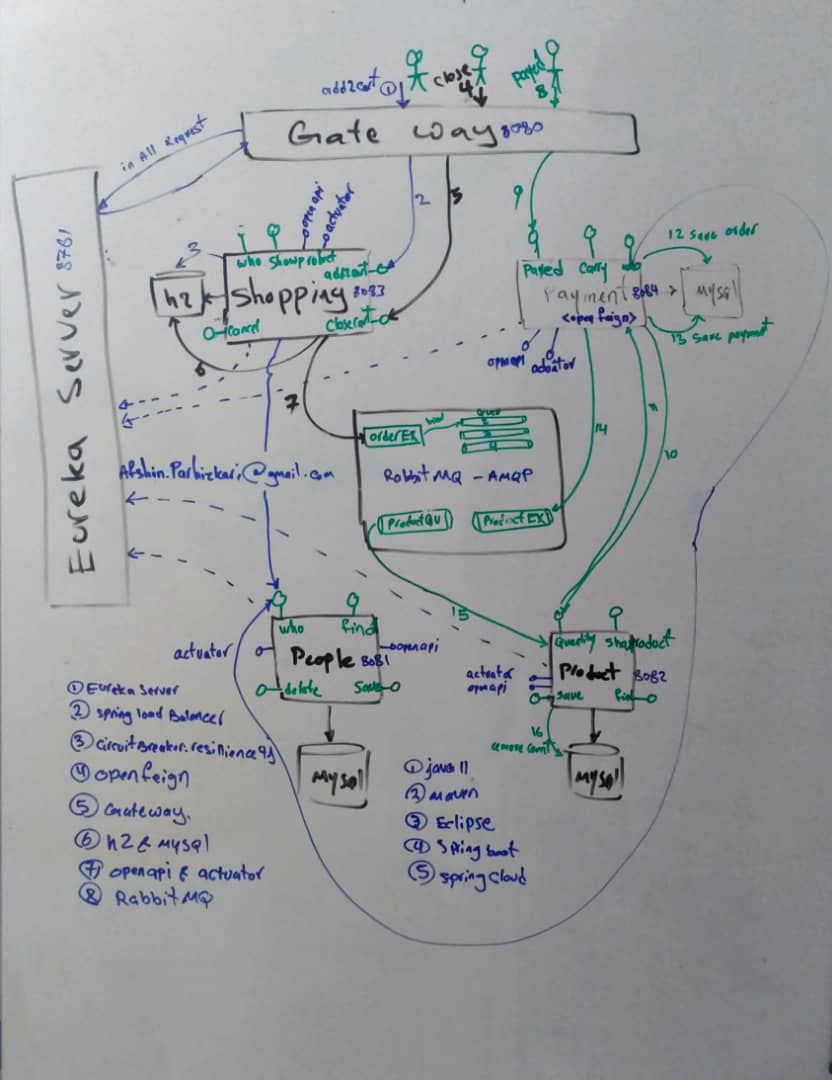 add2cart ①
close
4
payed
8
Gate way 8080
in All Request
Eureka Server 8761
2
5
9
3
openapi
actuator
who
add2cart
h2
Shopping 8083
cancel
closecart
6
7
12 save order
Payed
Carry
Payment 8084
<openfeign>
MySql
13 save payment
openapi
14
11
10
orderEX
RabbitMQ - AMQP
ProductQU
ProductEX
Afshin.Parhizkari@gmail.com
15
who
find
actuator
openapi
People 8081
delete
Save
MySql
Product 8082
actuator
openapi
save
find
16
MySql
① Eureka Server
② spring load Balancer
③ CircuitBreaker:resilience4j
④ openfeign
⑤ Gateway.
⑥ h2 & MySql
⑦ openapi & actuator
⑧ RabbitMQ
① java 11
② maven
③ Eclipse
④ Spring boot
⑤ spring Cloud